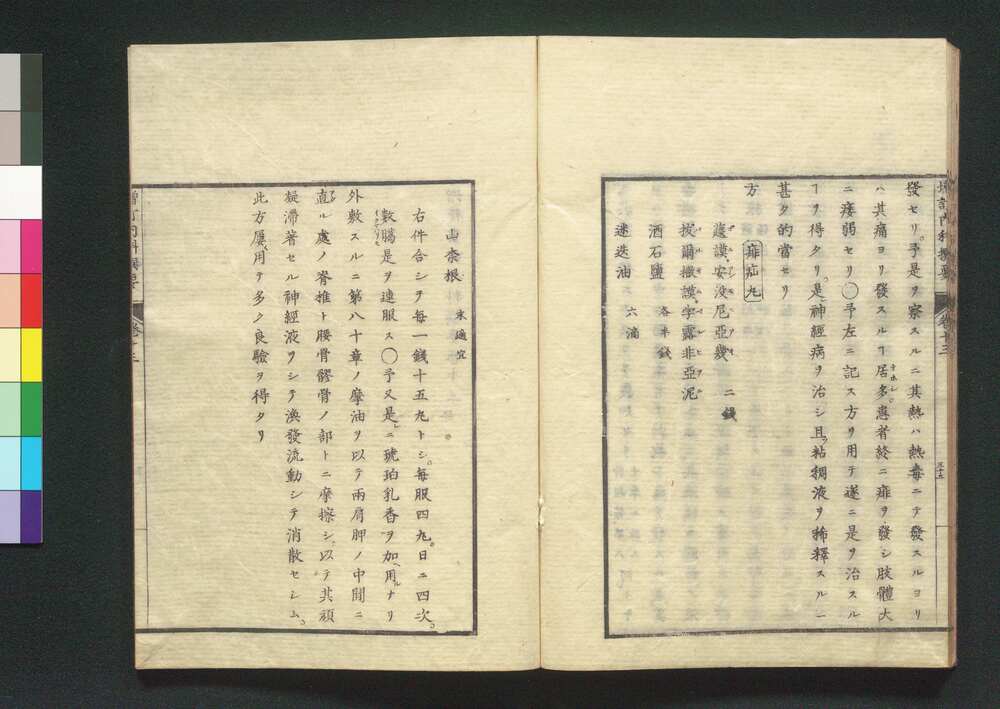 發セリ。予是ヲ察スルニ其熱ハ熱毒ニテ發スルヨリ
ハ其痛ヨリ發スルヿ居多患者終ニ痱ヲ發シ肢體大
ニ痿弱セリ◯予左ニ記ス方リ用テ遂ニ是ヲ治スル
ヿヲ得タリ。是神經病ヲ治シ且粘稠液ヲ稀釋スルニ
甚タ的當セリ
方 痱疝丸
護謨安没尼亞幾 二錢
拔爾撒謨孛露非亞泥
酒石鹽 各半錢
迷迭油 六滴
山柰根 末適宜
右件合シテ毎一錢十五丸トシ。毎服四丸。日ニ四次。
數臈是ヲ連服ス◯予又是ニ琥珀乳香ヲ加用ルナリ
外敷スルニ第八十章ノ摩油ヲ以テ兩肩胛ノ中間ニ
直ル處ノ脊椎ト腰骨髎骨ノ部トニ摩擦シ以テ其頑
凝滯著セル神經液ヲシテ渙發流動シテ消散セシム。
此方屢用テ多ク良驗ヲ得タリ